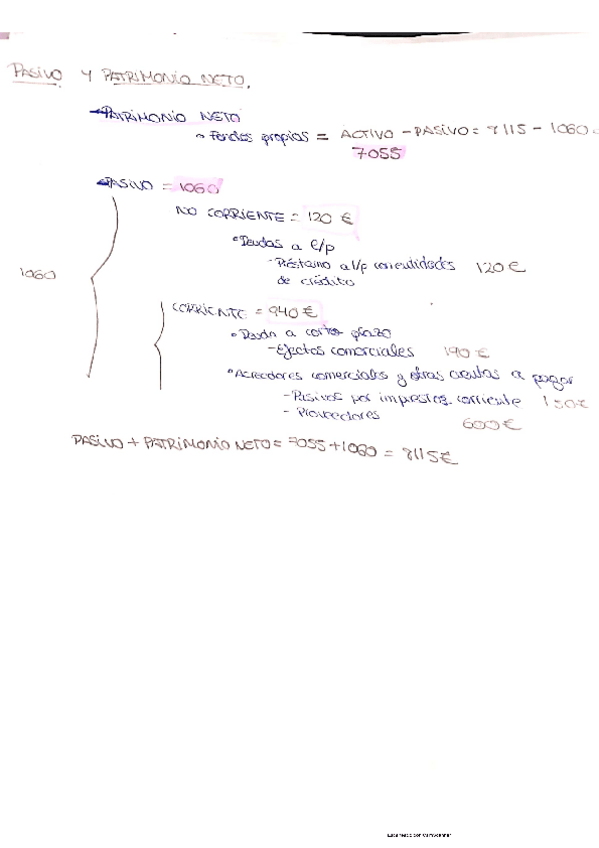 PASIVO Y PATRIMONIO NETO.
PATRIMONIO NETO
Fondos propios = ACTIVO - PASIVO = 8115 - 1060 =
7055
PASIVO = 1060
NO CORRIENTE = 120 €
Deudas a l/p
- Préstamo a l/p con entidades 120 €
de crédito
1060
CORRIENTE = 940 €
Deuda a corto plazo
- Efectos comerciales 190 €
Acreedores comerciales y otras cuentas a pagar
- Pasivos por impuestos corriente 150 €
- Proveedores 600 €
PASIVO + PATRIMONIO NETO = 7055 + 1060 = 8115 €